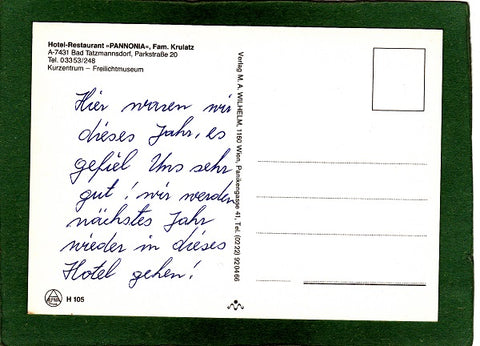 Hotel-Restaurant »PANNONIA«, Fam. Krulatz
A-7431 Bad Tatzmannsdorf, Parkstraße 20
Tel. 03353/248
Kurzentrum – Freilichtmuseum
Hier waren wir
dieses Jahr, es
gefiel Uns sehr
gut! wir werden
nächstes Jahr
wieder in dieses
Hotel gehen!
H 105
Verlag M. A. WILHELM, 1160 Wien, Panikengasse 41, Tel. (0222) 92 04 66